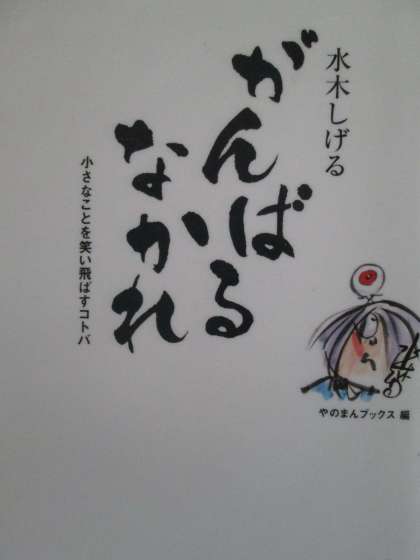 水木しげる
がんばる
なかれ
小さなことを笑い飛ばすコトバ
やのまんブックス 編